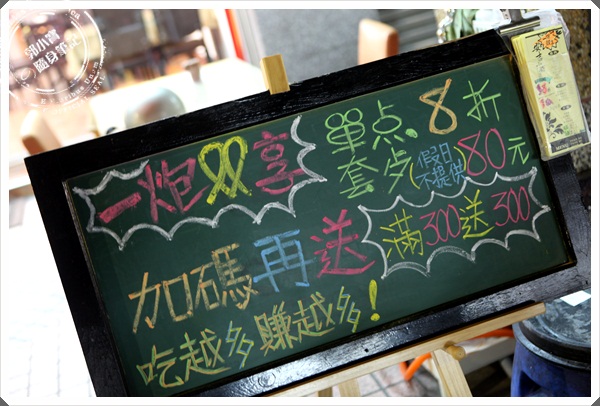 一炮双享
單点8折
套步(假日不提供)80元
加碼再送
滿300送300
吃越多賺越多!